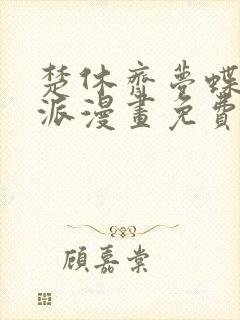 楚休齊夢蝶
派漫畫免費
顧嘉棠